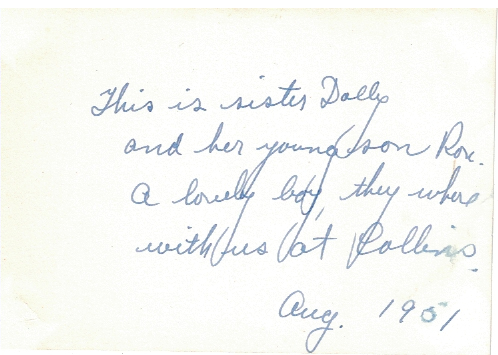 This is sister Dolly
and her young son Ron.
A lovely boy, they where
with us at Collins.
Aug. 1951